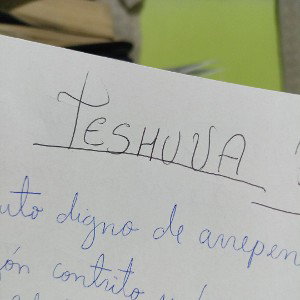 TESHUVA
uto digno de arrepen
ón contrito